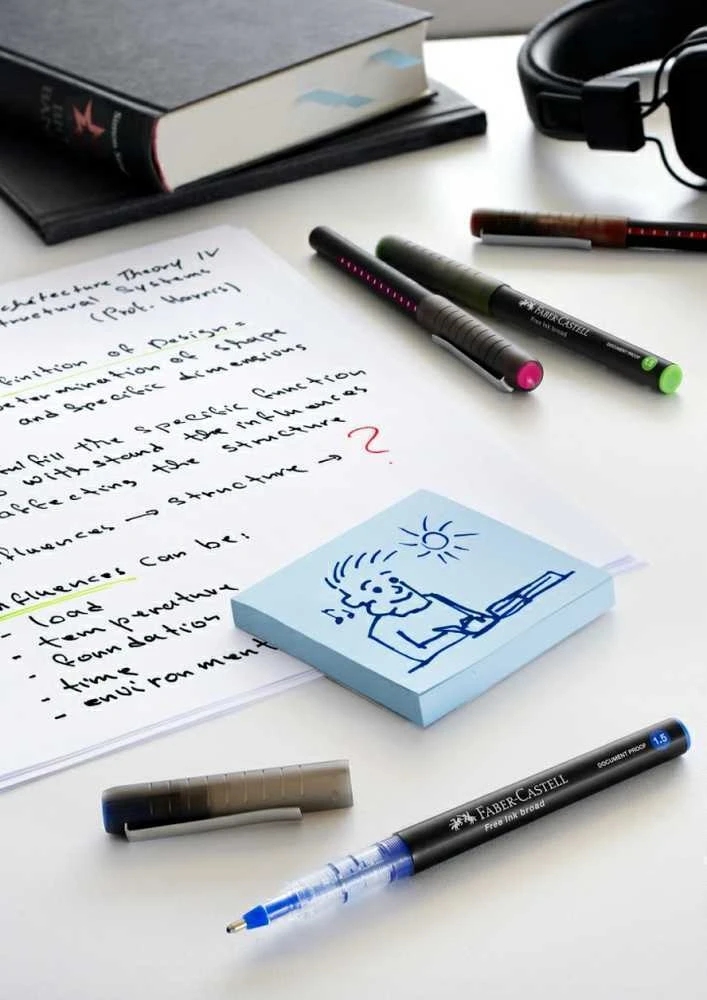 chitecture Theory IV
tructural Systems
(Prof. Harris)
finition of Design =
etermination of shape
and specific dimensions
fill the specific function
withstand the influences
affecting the structure
fluences → structure → ?
nfluences can be:
- load
- temperature
- foundation
- time
- environment
FABER-CASTELL
Free Ink broad
DOCUMENT PROOF
FABER-CASTELL
Free Ink broad
DOCUMENT PROOF
1.5